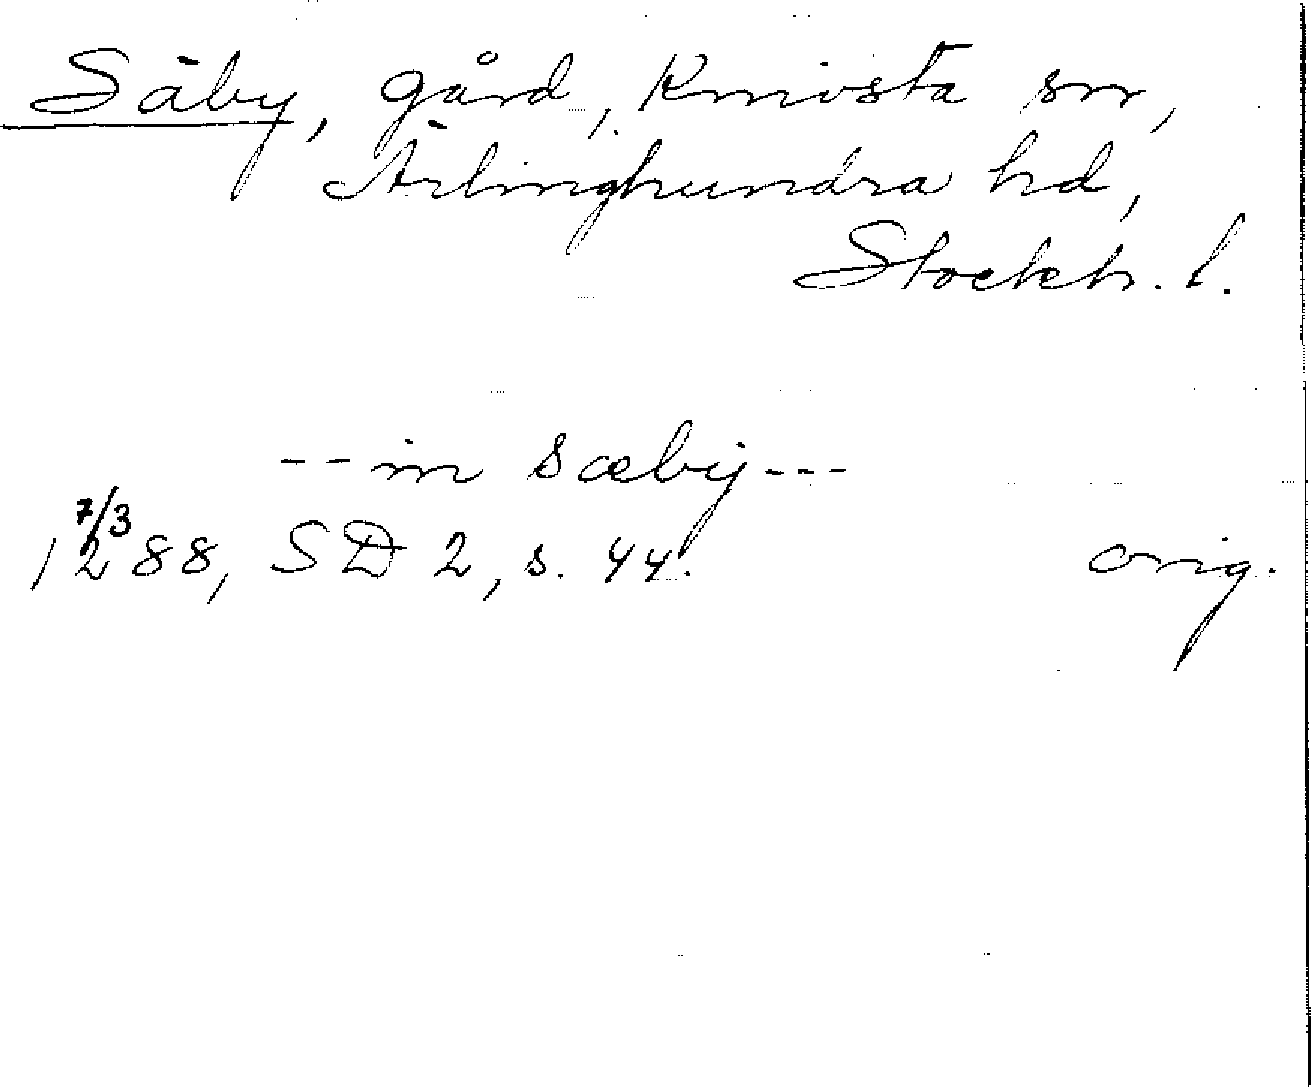 Säby, gård, Knivsta sn,
Ärlinghundra hd,
Stockh. l.
-- in sæby ---
7/3
1288, SD 2, s. 44.
orig.